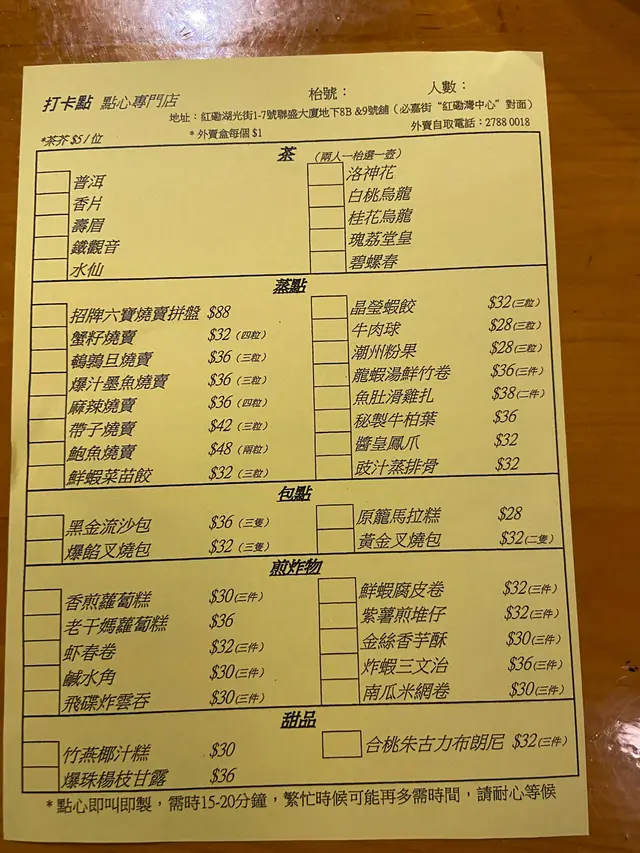 打卡點 點心專門店 枱號： 人數：
地址：紅磡湖光街1-7號聯盛大廈地下8B &9號舖（必嘉街“紅磡灣中心”對面）
*茶芥 $5/位 *外賣盒每個 $1 外賣自取電話：2788 0018
茶 （兩人一枱選一壺）
普洱 洛神花
香片 白桃烏龍
壽眉 桂花烏龍
鐵觀音 瑰荔堂皇
水仙 碧螺春
蒸點
招牌六寶燒賣拼盤 $88 晶瑩蝦餃 $32(三粒)
蟹籽燒賣 $32 (四粒) 牛肉球 $28(三粒)
鵪鶉旦燒賣 $36 (三粒) 潮州粉果 $28(三粒)
爆汁墨魚燒賣 $36 (三粒) 龍蝦湯鮮竹卷 $36(三件)
麻辣燒賣 $36 (四粒) 魚肚滑雞扎 $38(二件)
帶子燒賣 $42 (三粒) 秘製牛柏葉 $36
鮑魚燒賣 $48 (兩粒) 醬皇鳳爪 $32
鮮蝦菜苗餃 $32 (三粒) 豉汁蒸排骨 $32
包點
黑金流沙包 $36 (三隻) 原籠馬拉糕 $28
爆餡叉燒包 $32 (三隻) 黃金叉燒包 $32(二隻)
煎炸物
香煎蘿蔔糕 $30(三件) 鮮蝦腐皮卷 $32(三件)
老干媽蘿蔔糕 $36 紫薯煎堆仔 $32(三件)
虾春卷 $32(三件) 金絲香芋酥 $30(三件)
鹹水角 $30(三件) 炸蝦三文治 $36(三件)
飛碟炸雲吞 $30(三件) 南瓜米網卷 $30(三件)
甜品
竹燕椰汁糕 $30 合桃朱古力布朗尼 $32(三件)
爆珠楊枝甘露 $36
*點心即叫即製，需時15-20分鐘，繁忙時候可能再多需時間，請耐心等候